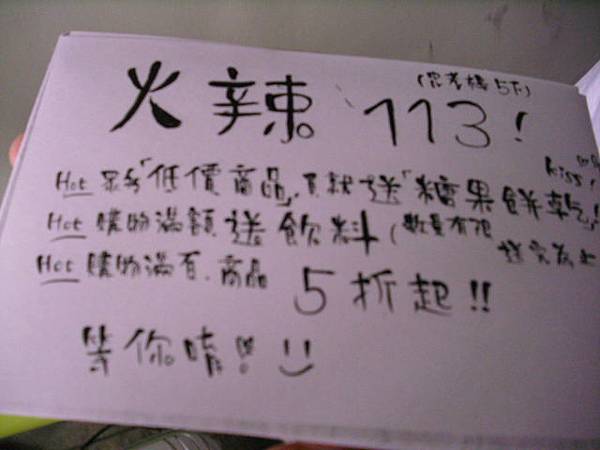 火辣 113!
kiss!
Hot 「低價商品」買就送「糖果餅乾」!
Hot 購物滿額送飲料(數量有限
送完為止
Hot 購物滿百.商品 5折起!!
等你唷!